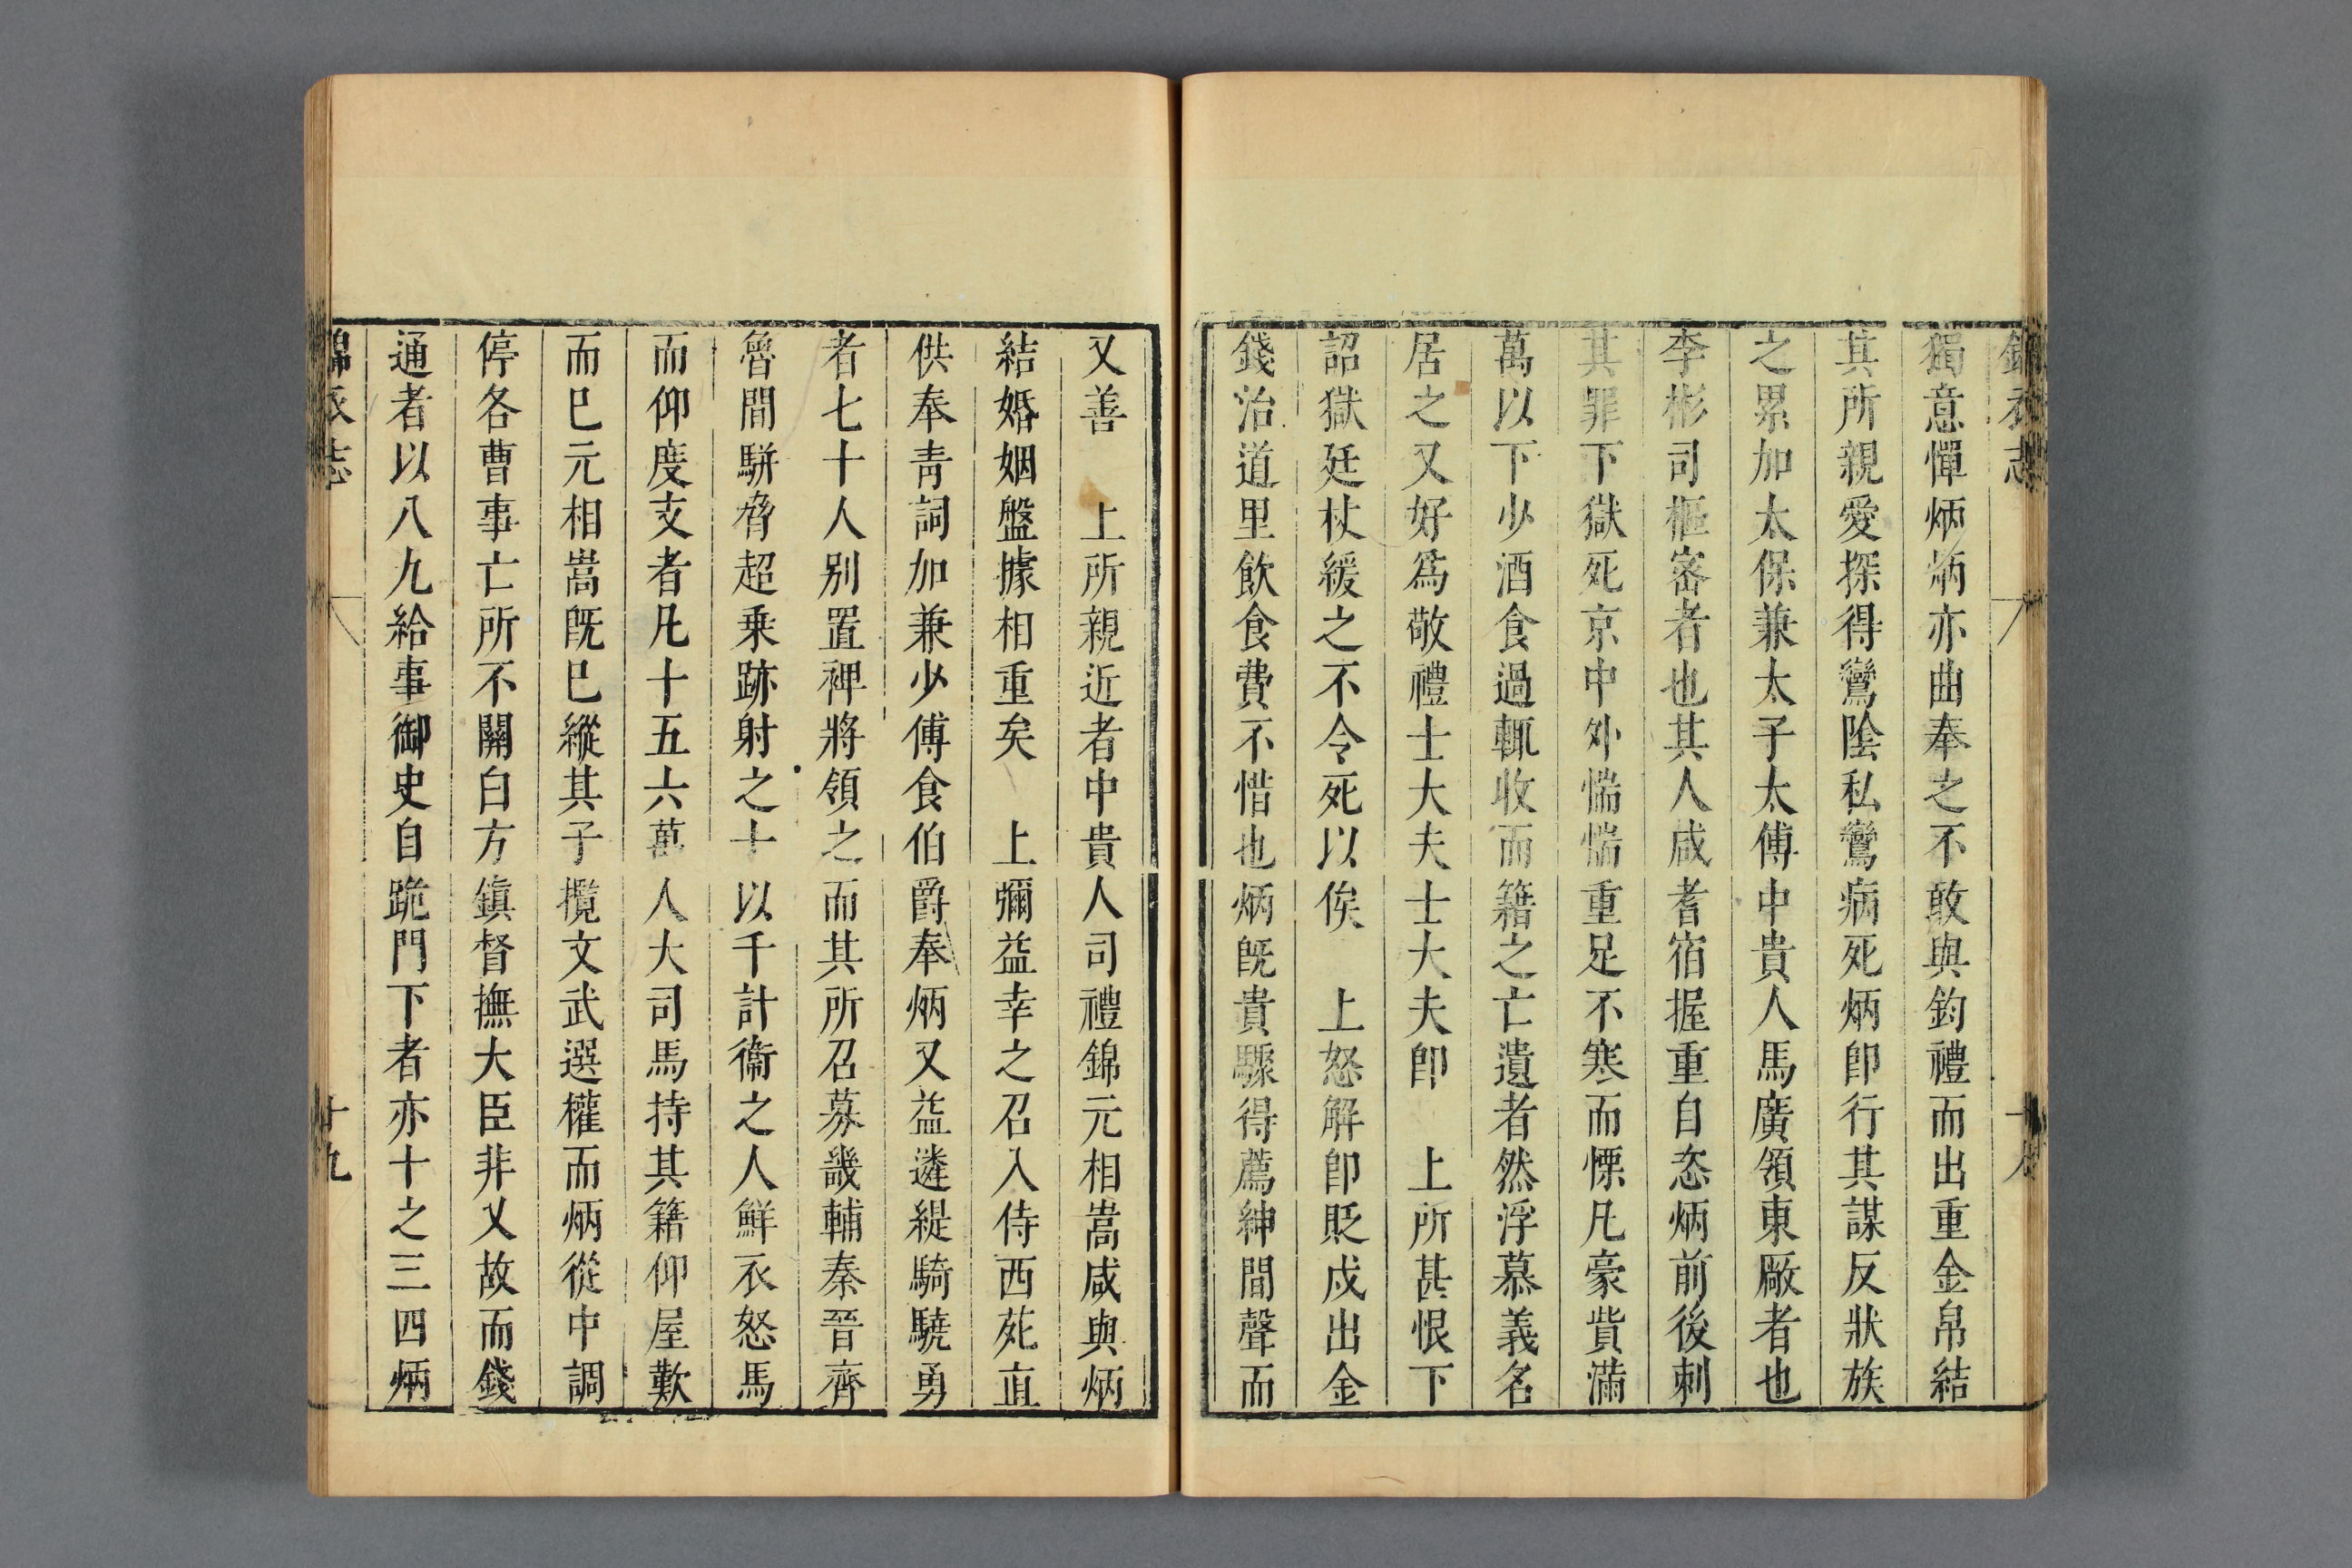 錦衣志
獨意憚炳炳亦曲奉之不敢與鈞禮而出重金帛結
其所親愛探得鸞陰私鸞病死炳卽行其謀反狀族
之累加太保兼太子太傅中貴人馬廣領東厰者也
李彬司樞宻者也其人咸耆宿握重自恣炳前後刺
其罪下獄死京中外惴惴重足不寒而慄凡豪貲滿
萬以下少酒食過輒收而籍之亡遺者然浮慕義名
居之又好爲敬禮士大夫士大夫卽 上所甚恨下
詔獄廷杖緩之不令死以俟 上怒解卽貶戍出金
錢治道里飮食費不惜也炳旣貴驟得薦紳間聲而
又善 上所親近者中貴人司禮錦元相嵩咸與炳
結婚姻盤據相重矣 上彌益幸之召入侍西苑直
供奉靑詞加兼少傅食伯爵奉炳又益遴緹騎驍勇
者七十人别置裨將領之而其所召募畿輔秦晉齊
魯間駢脅超乗跡射之士以千計衞之人鮮衣怒馬
而仰度支者凡十五六萬人大司馬持其籍仰屋歎
而已元相嵩旣已縱其子攬文武選權而炳從中調
停各曹事亡所不關白方鎮督撫大臣非乂故而錢
通者以八九給事御史自跪門下者亦十之三四炳
錦衣志
十九